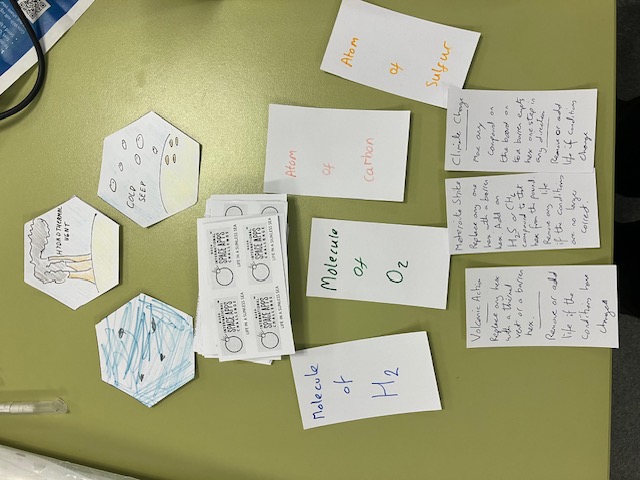 HYDROTHERMAL
VENT
COLD
SEEP
NASA
INTERNATIONAL
SPACE APPS
CHALLENGE
LIFE IN A SUNLESS SEA
NASA
INTERNATIONAL
SPACE APPS
CHALLENGE
LIFE IN A SUNLESS SEA
INTERNATIONAL
SPACE APPS
CHALLENGE
LIFE IN A SUNLESS SEA
INTERNATIONAL
SPACE APPS
CHALLENGE
LIFE IN A SUNLESS SEA
Molecule
of
H2
Molecule
of
O2
Atom
of
Carbon
Atom
of
Sulfur
Volcanic Action
Replace any hex
with a thermal
vent or a barren
hex.
Remove or add
life if the
conditions have
changed
Meteorite Strike
Replace any one
hex with a barren
hex. Add an
H2S or CH4
compound to that
hex from the pound.
Remove any life
if the conditions
are no longer
correct.
Climate Change
Move any
compound on
the board on
to a barren empty
hex one step in
any direction
Remove or add
life if conditions
change